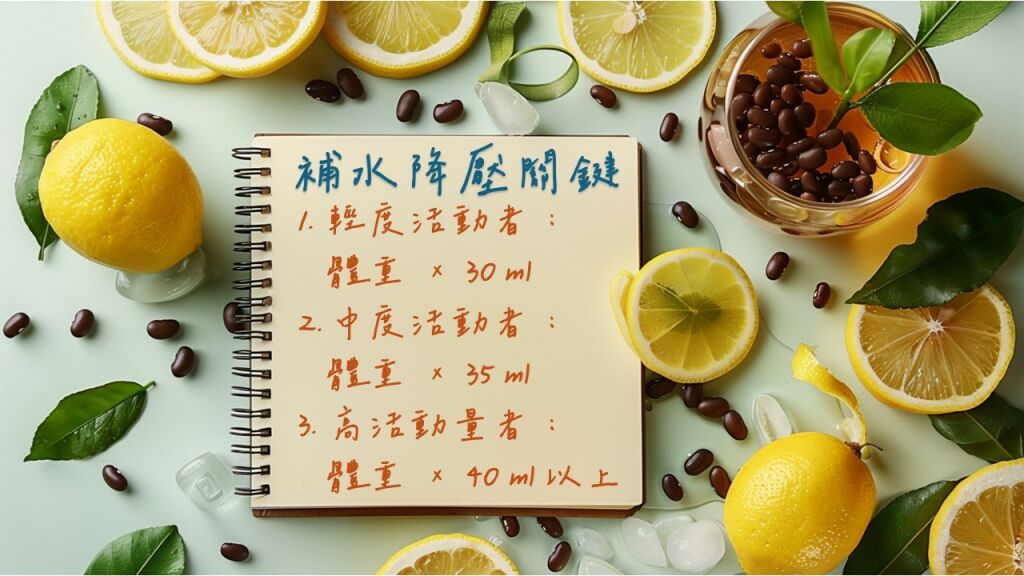 補水降壓關鍵
1. 輕度活動者：
體重 × 30 ml
2. 中度活動者：
體重 × 35 ml
3. 高活動量者：
體重 × 40 ml 以上